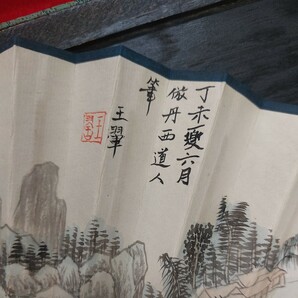 丁未夏六月
倣丹西道人
筆
王翬